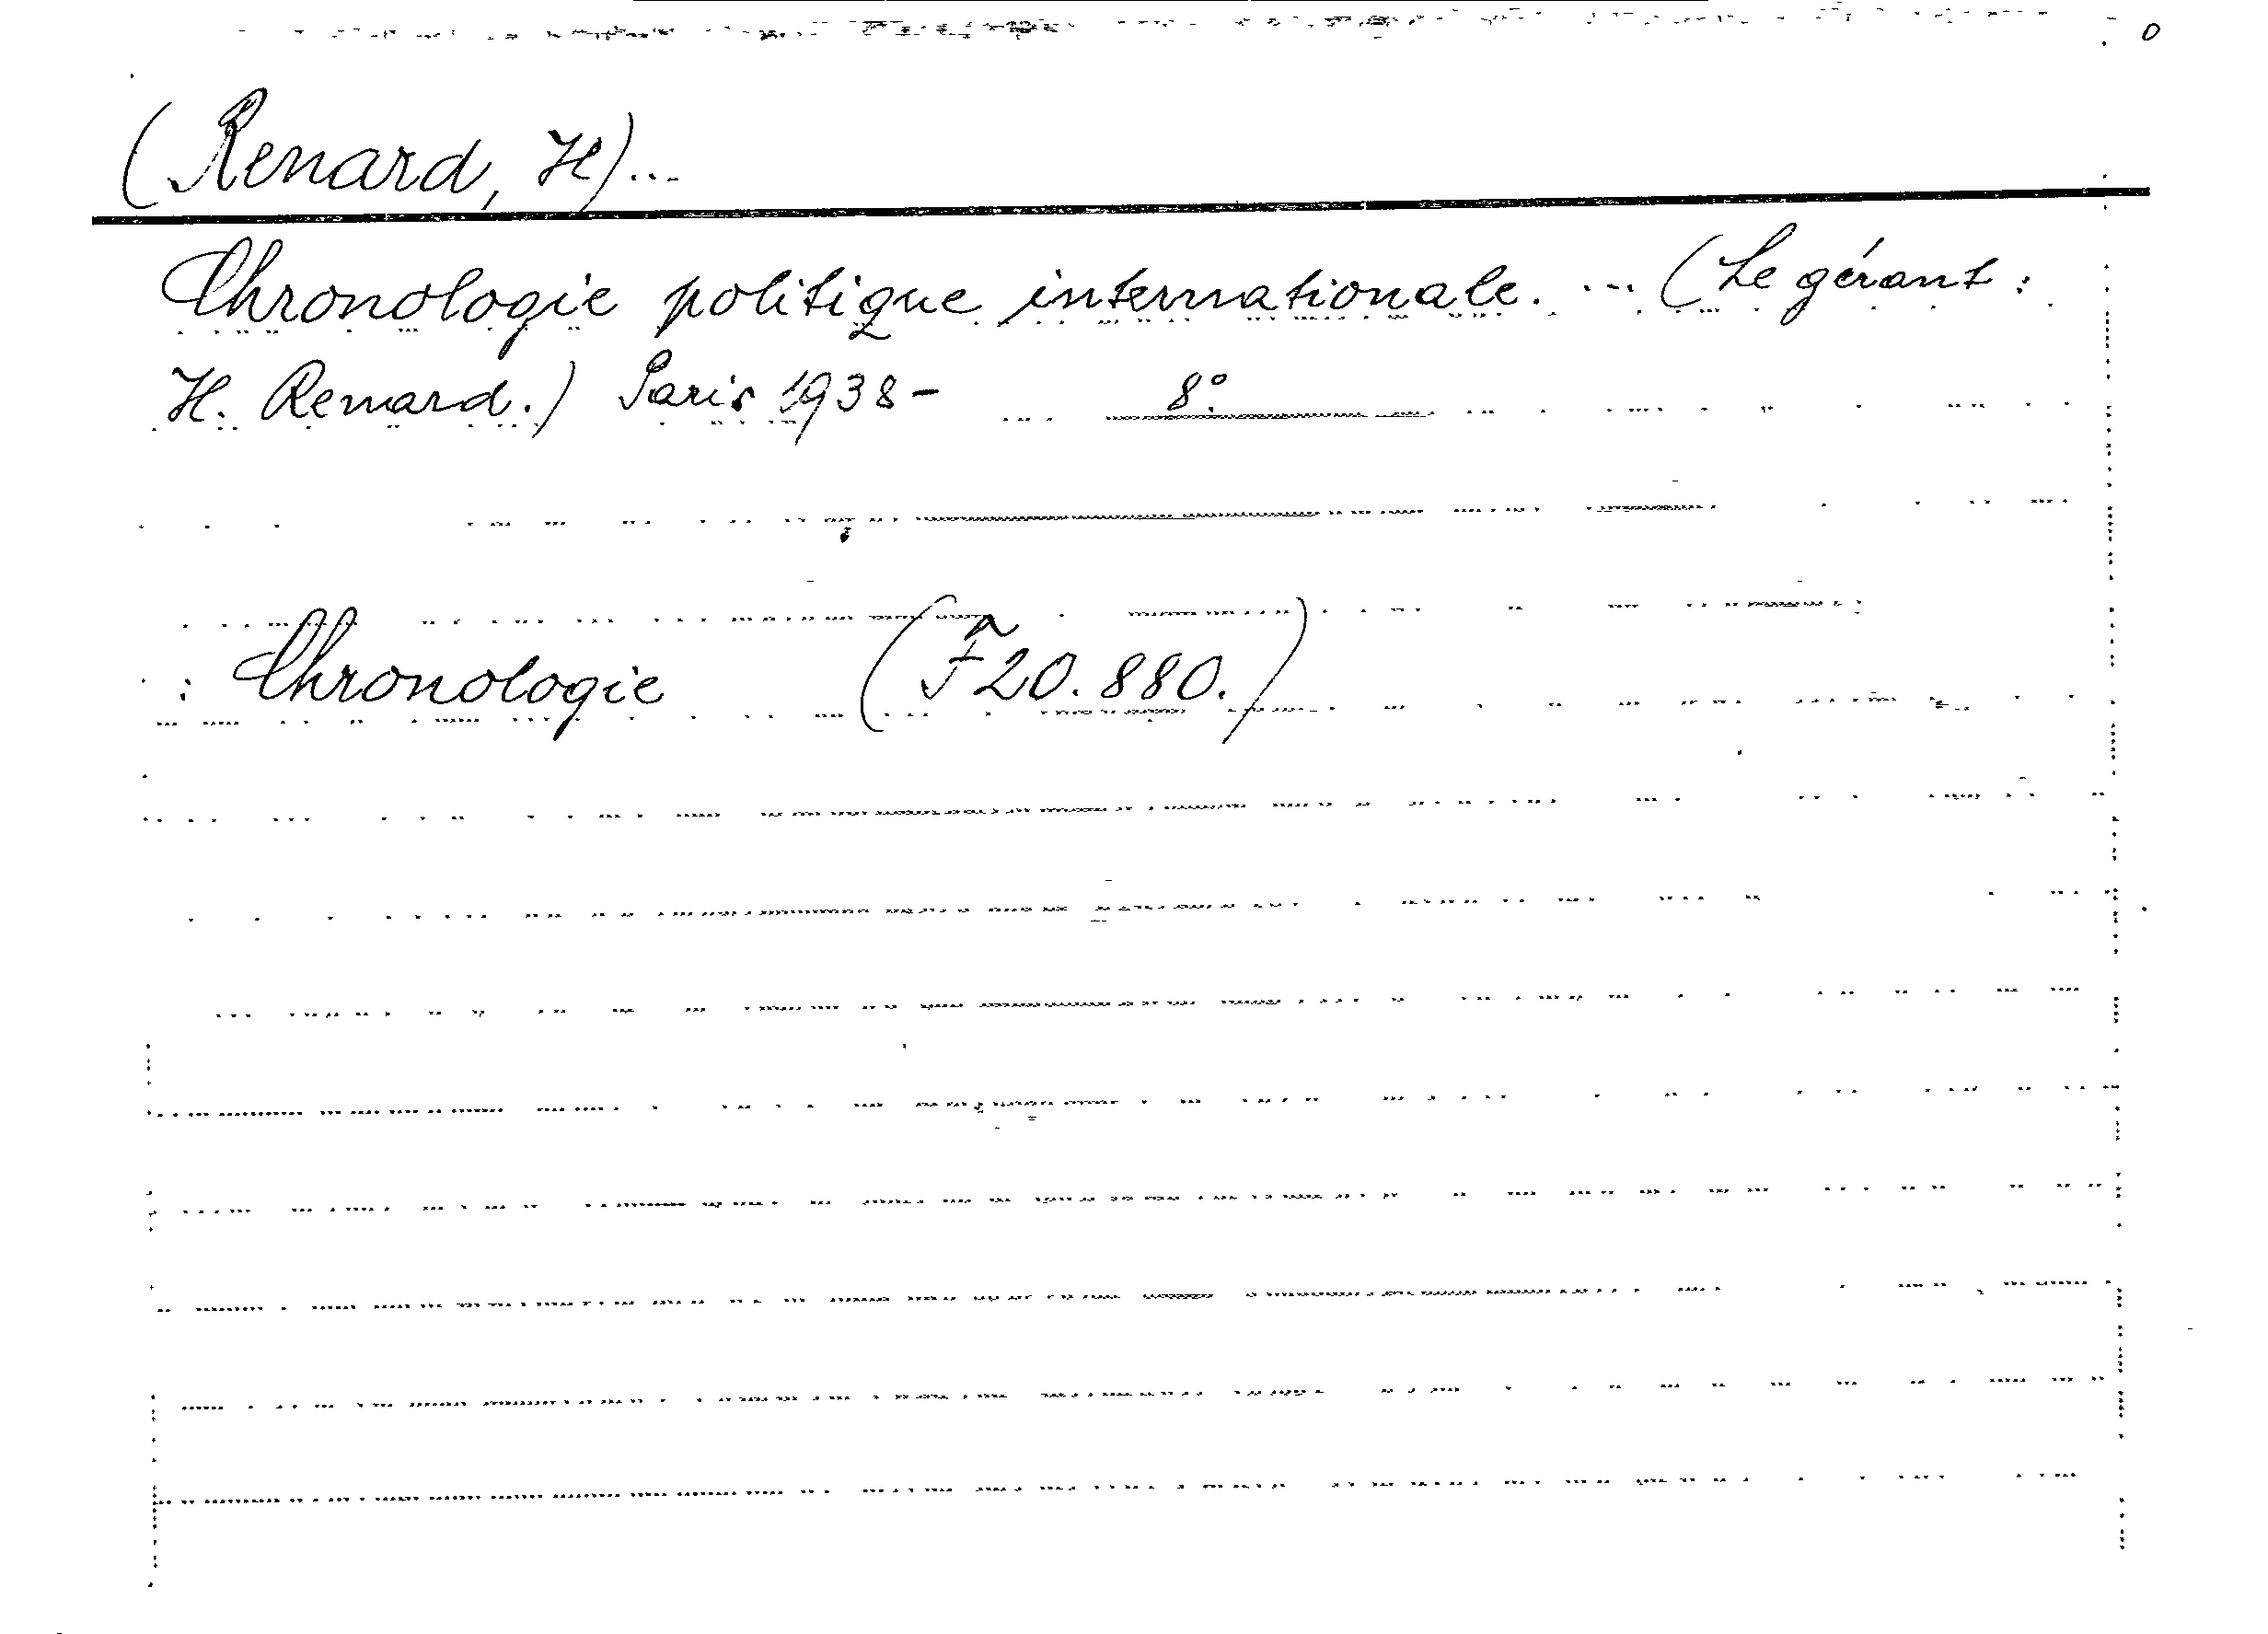 0
(Renard, H)...
Chronologie politique internationale. ... (Le gérant:
H. Renard.) Paris 1938- 8°.
: Chronologie (F̃ 20.880.)